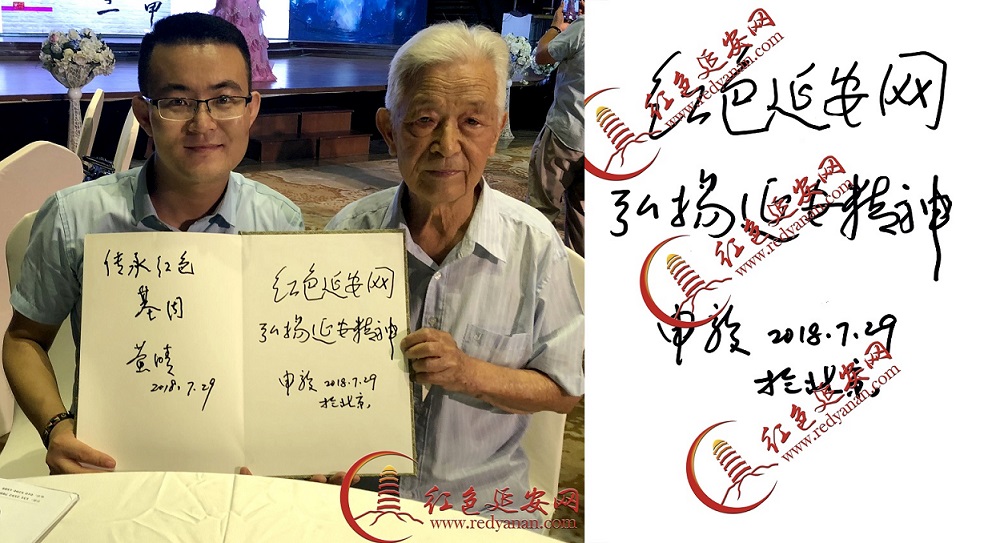 二 甲
传承红色
基因
黄晴
2018.7.29
红色延安网
弘扬延安精神
申毅 2018.7.29
于北京
红色延安网
www.redyanan.com
红色延安网
弘扬延安精神
申毅 2018.7.29
于北京
红色延安网
www.redyanan.com
红色延安网
www.redyanan.com
红色延安网
www.redyanan.com